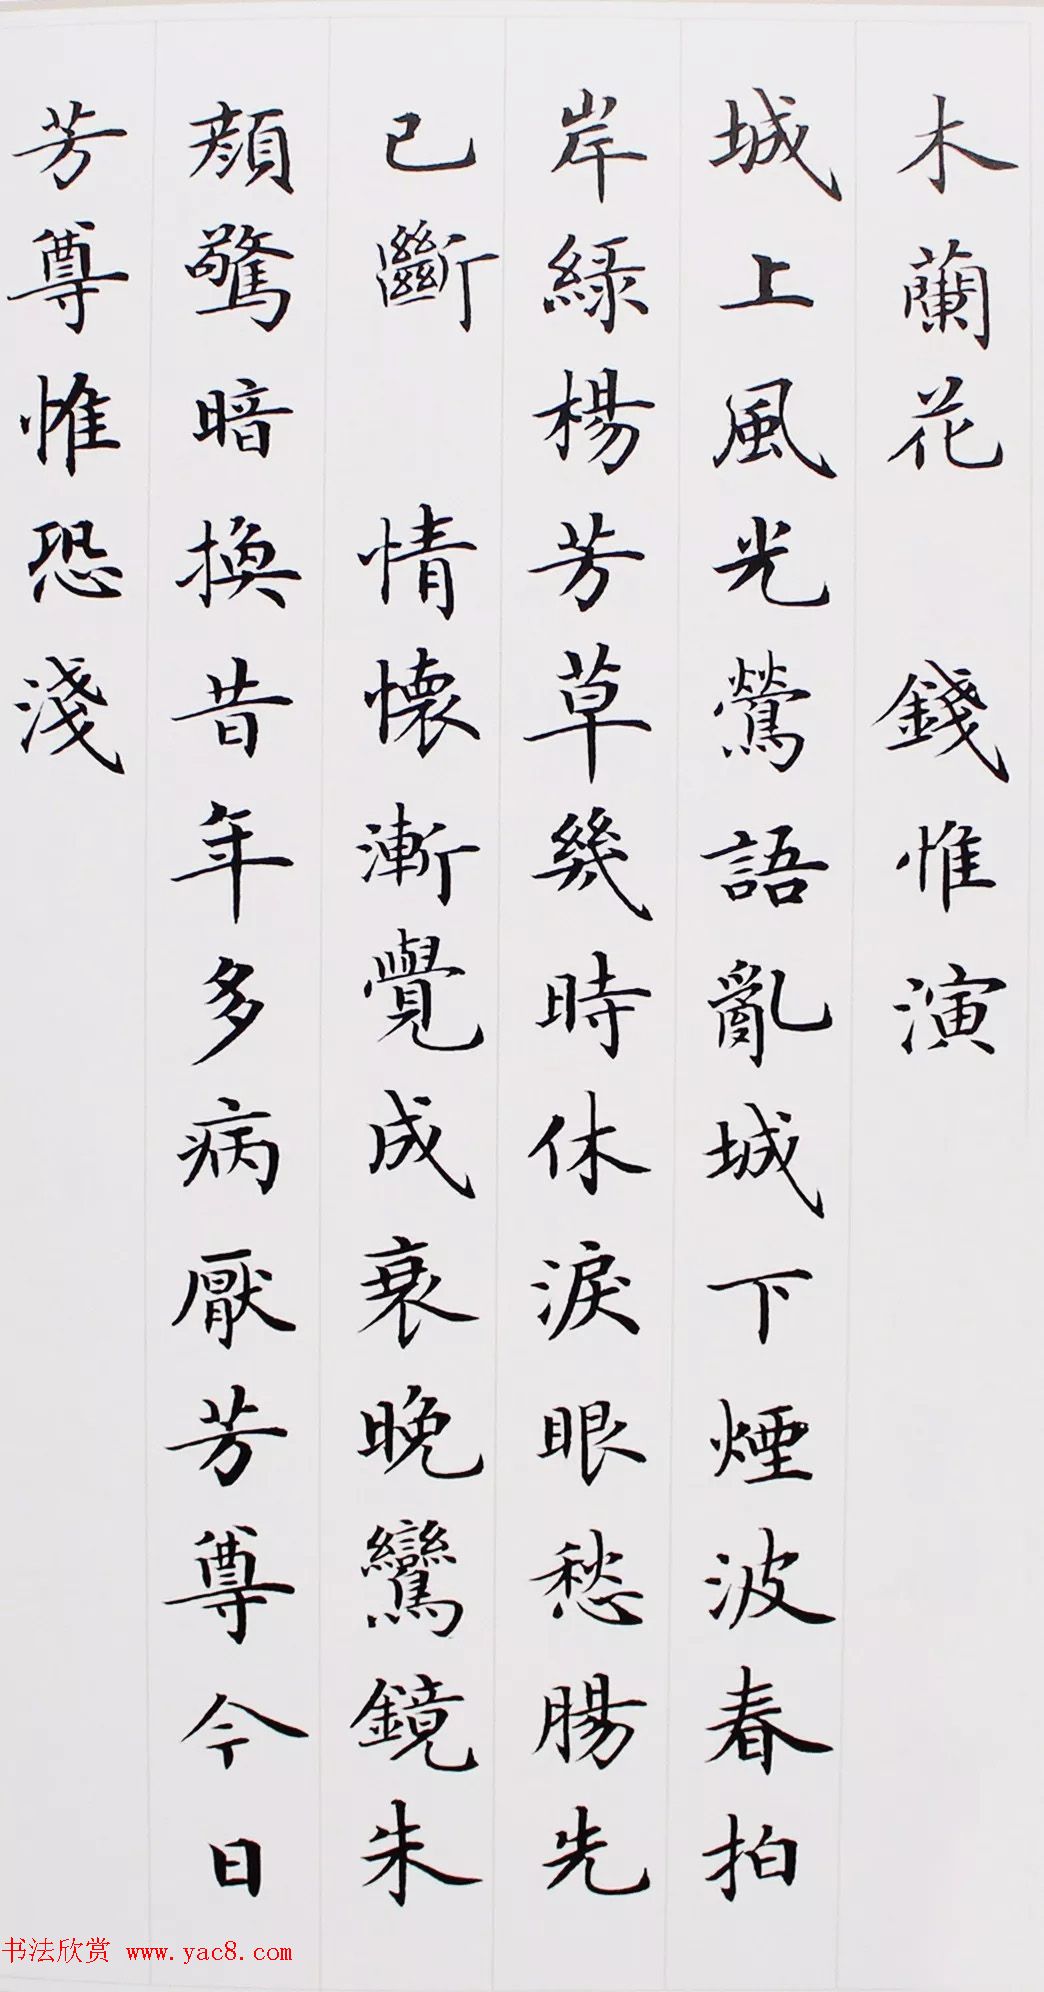 木蘭花 錢惟演
城上風光鶯語亂城下煙波春拍
岸綠楊芳草幾時休淚眼愁腸先
已斷 情懷漸覺成衰晚鸞鏡朱
顏驚暗換昔年多病厭芳尊今日
芳尊惟恐淺
书法欣赏 www.yac8.com